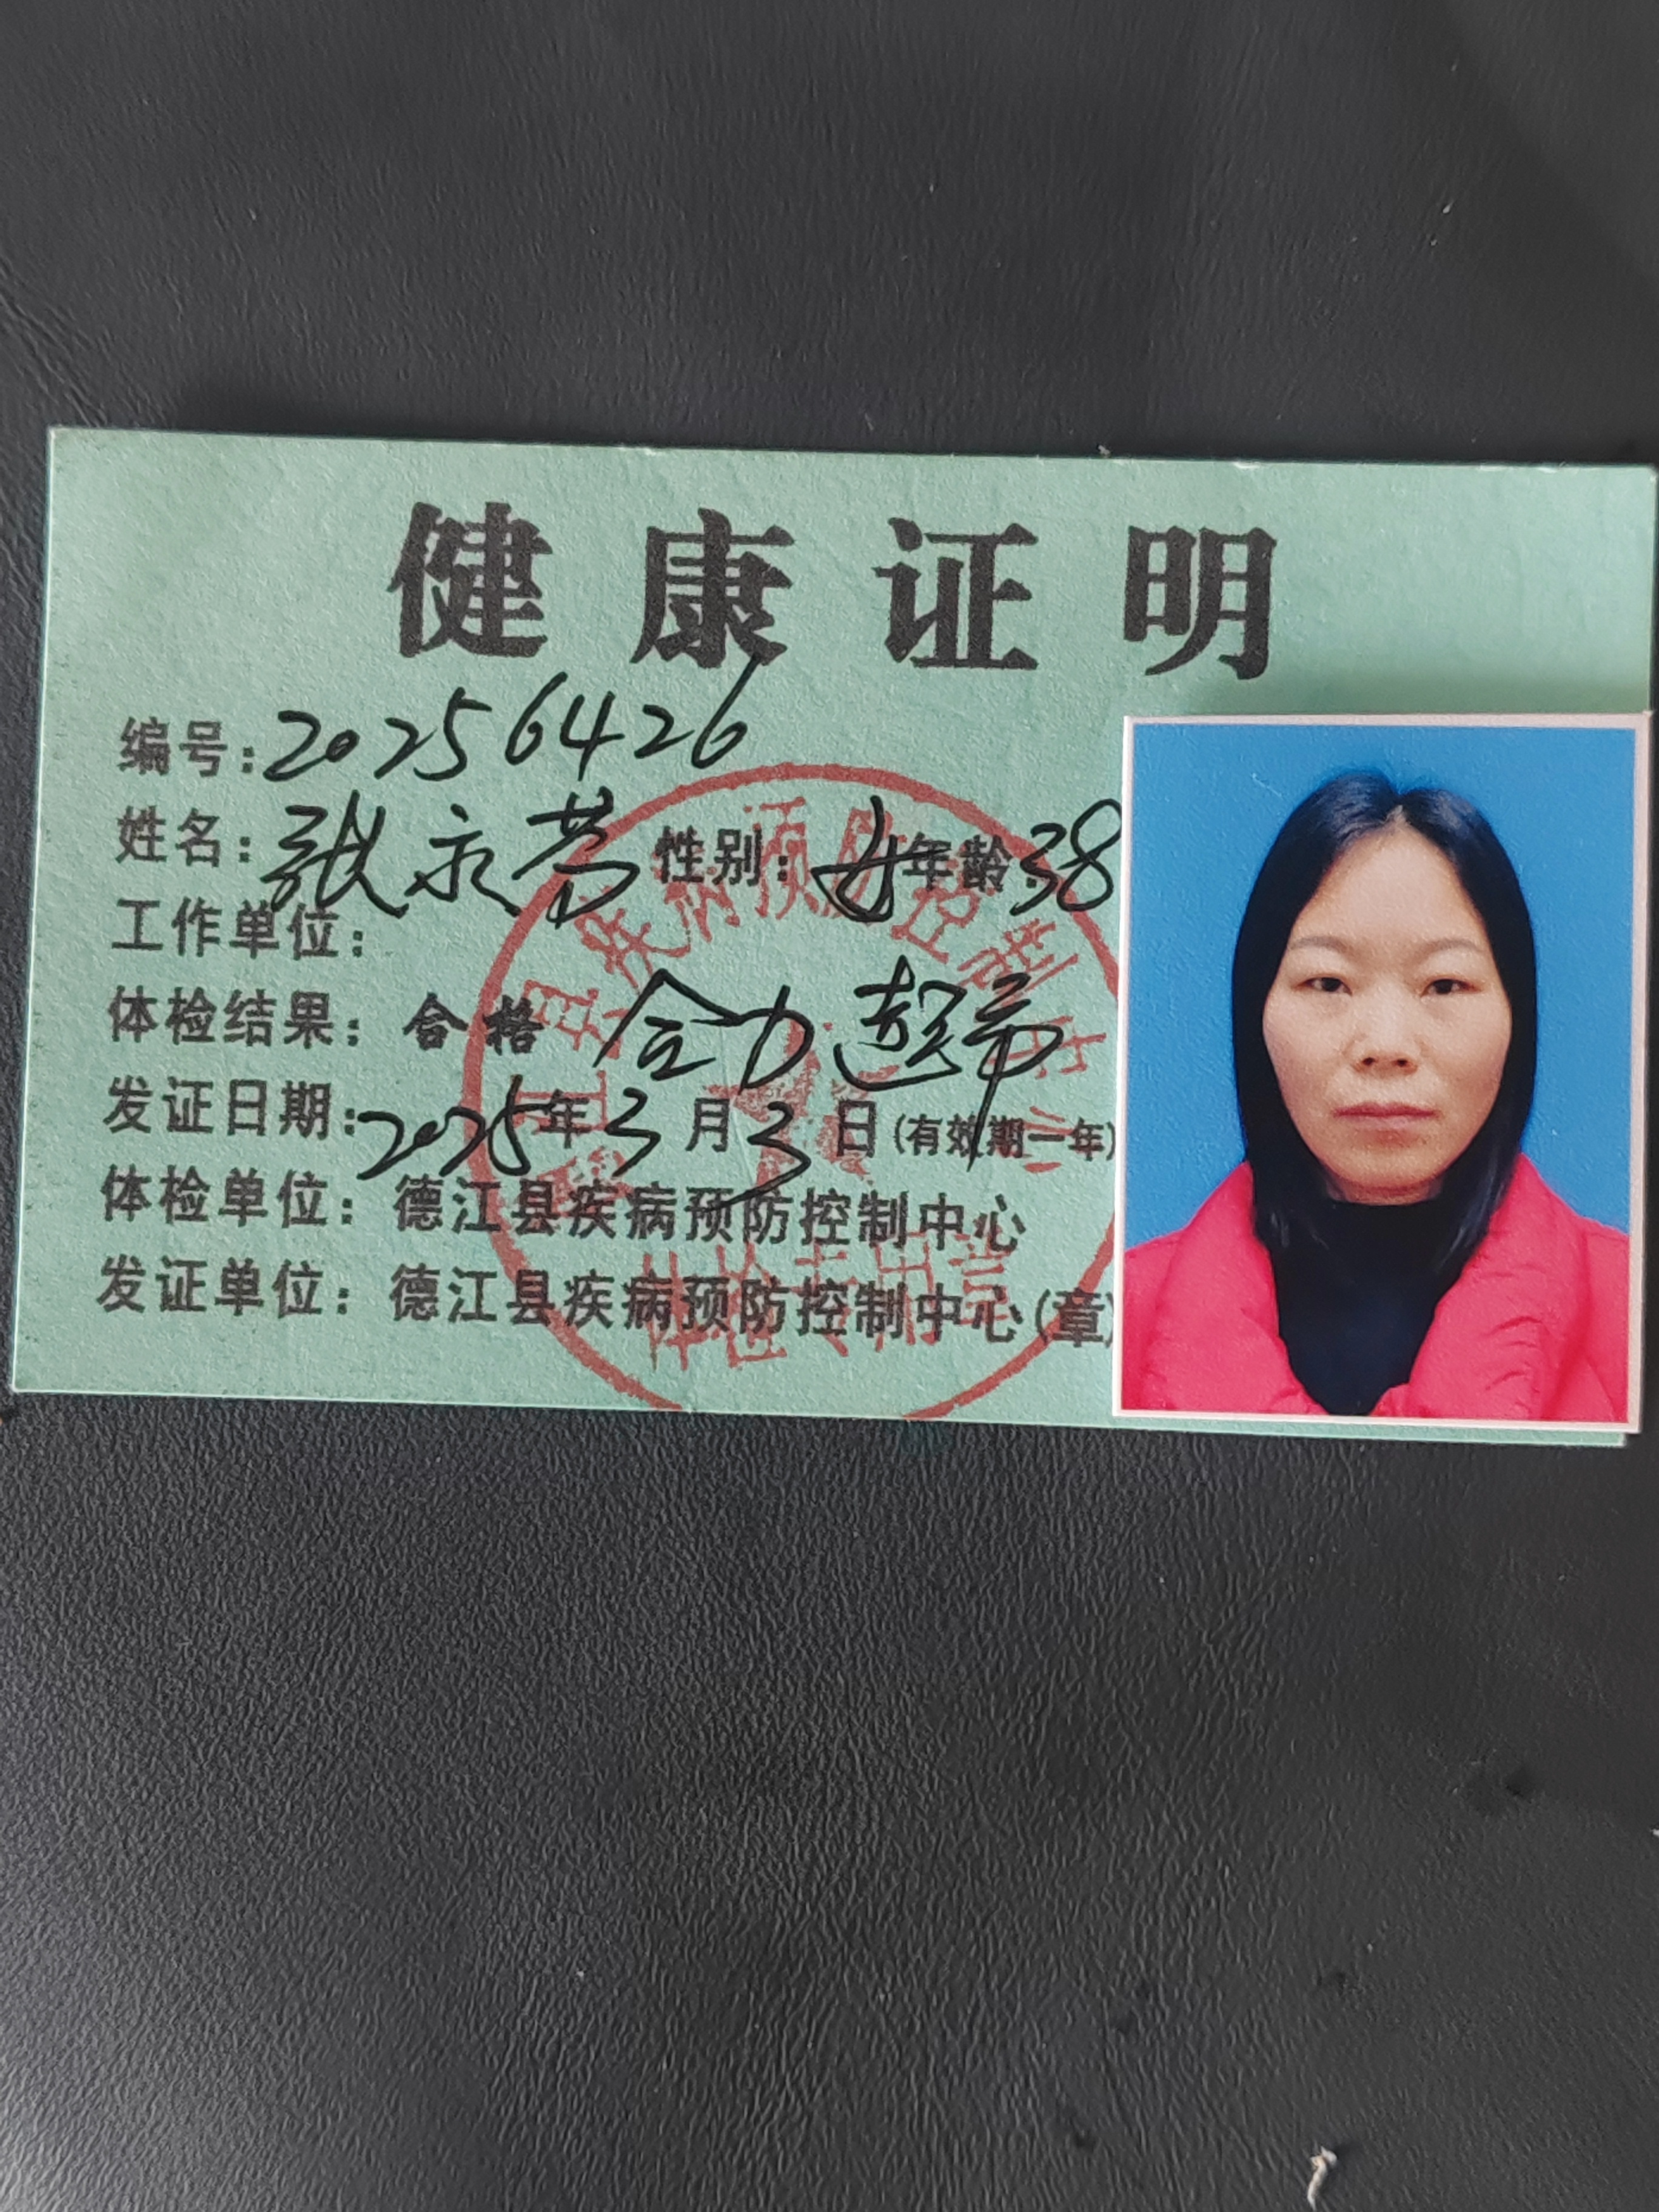 健康证明
编号：20256426
姓名：张永芳 性别：女 年龄：38
工作单位：
体检结果：合格 合力超市
发证日期：2025年3月3日(有效期一年)
体检单位：德江县疾病预防控制中心
发证单位：德江县疾病预防控制中心(章)
德江县疾病预防控制中心
体检专用章